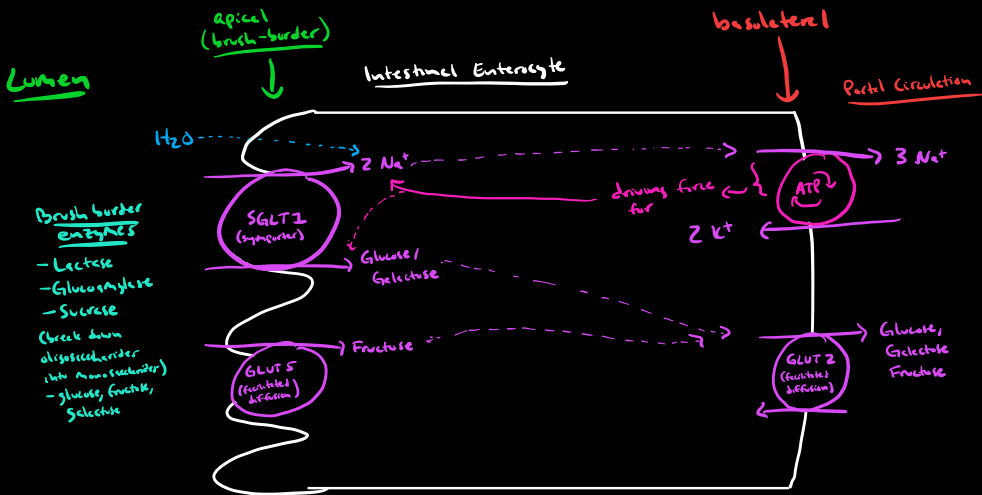 Lumen
apical
(brush-border)
Intestinal Enterocyte
basolateral
Portal Circulation
H₂O
2 Na⁺
3 Na⁺
SGLT1
(symporter)
driving force
for
ATP
2 K⁺
Glucose/
Galactose
Brush border
enzymes
- Lactase
- Glucoamylase
- Sucrase
(break down
oligosaccharides
into monosaccharides)
- glucose, fructose,
galactose
Fructose
GLUT5
(facilitated
diffusion)
GLUT2
(facilitated
diffusion)
Glucose,
Galactose
Fructose